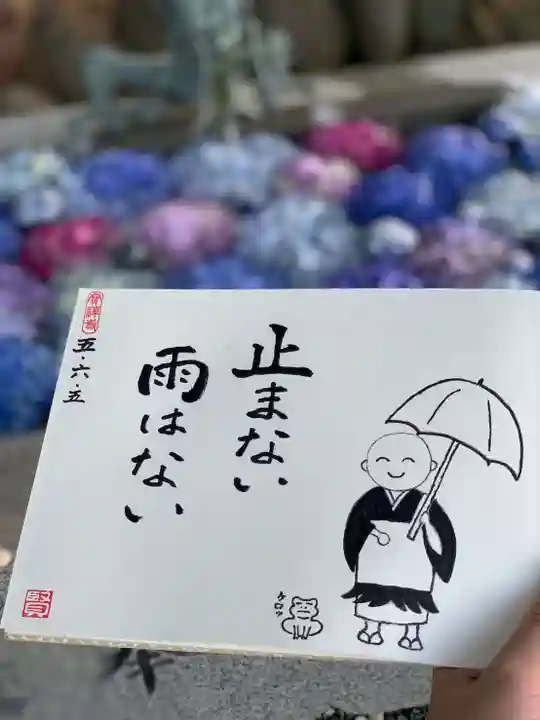 止まない
雨はない
五・六・五
ケロッ
賢